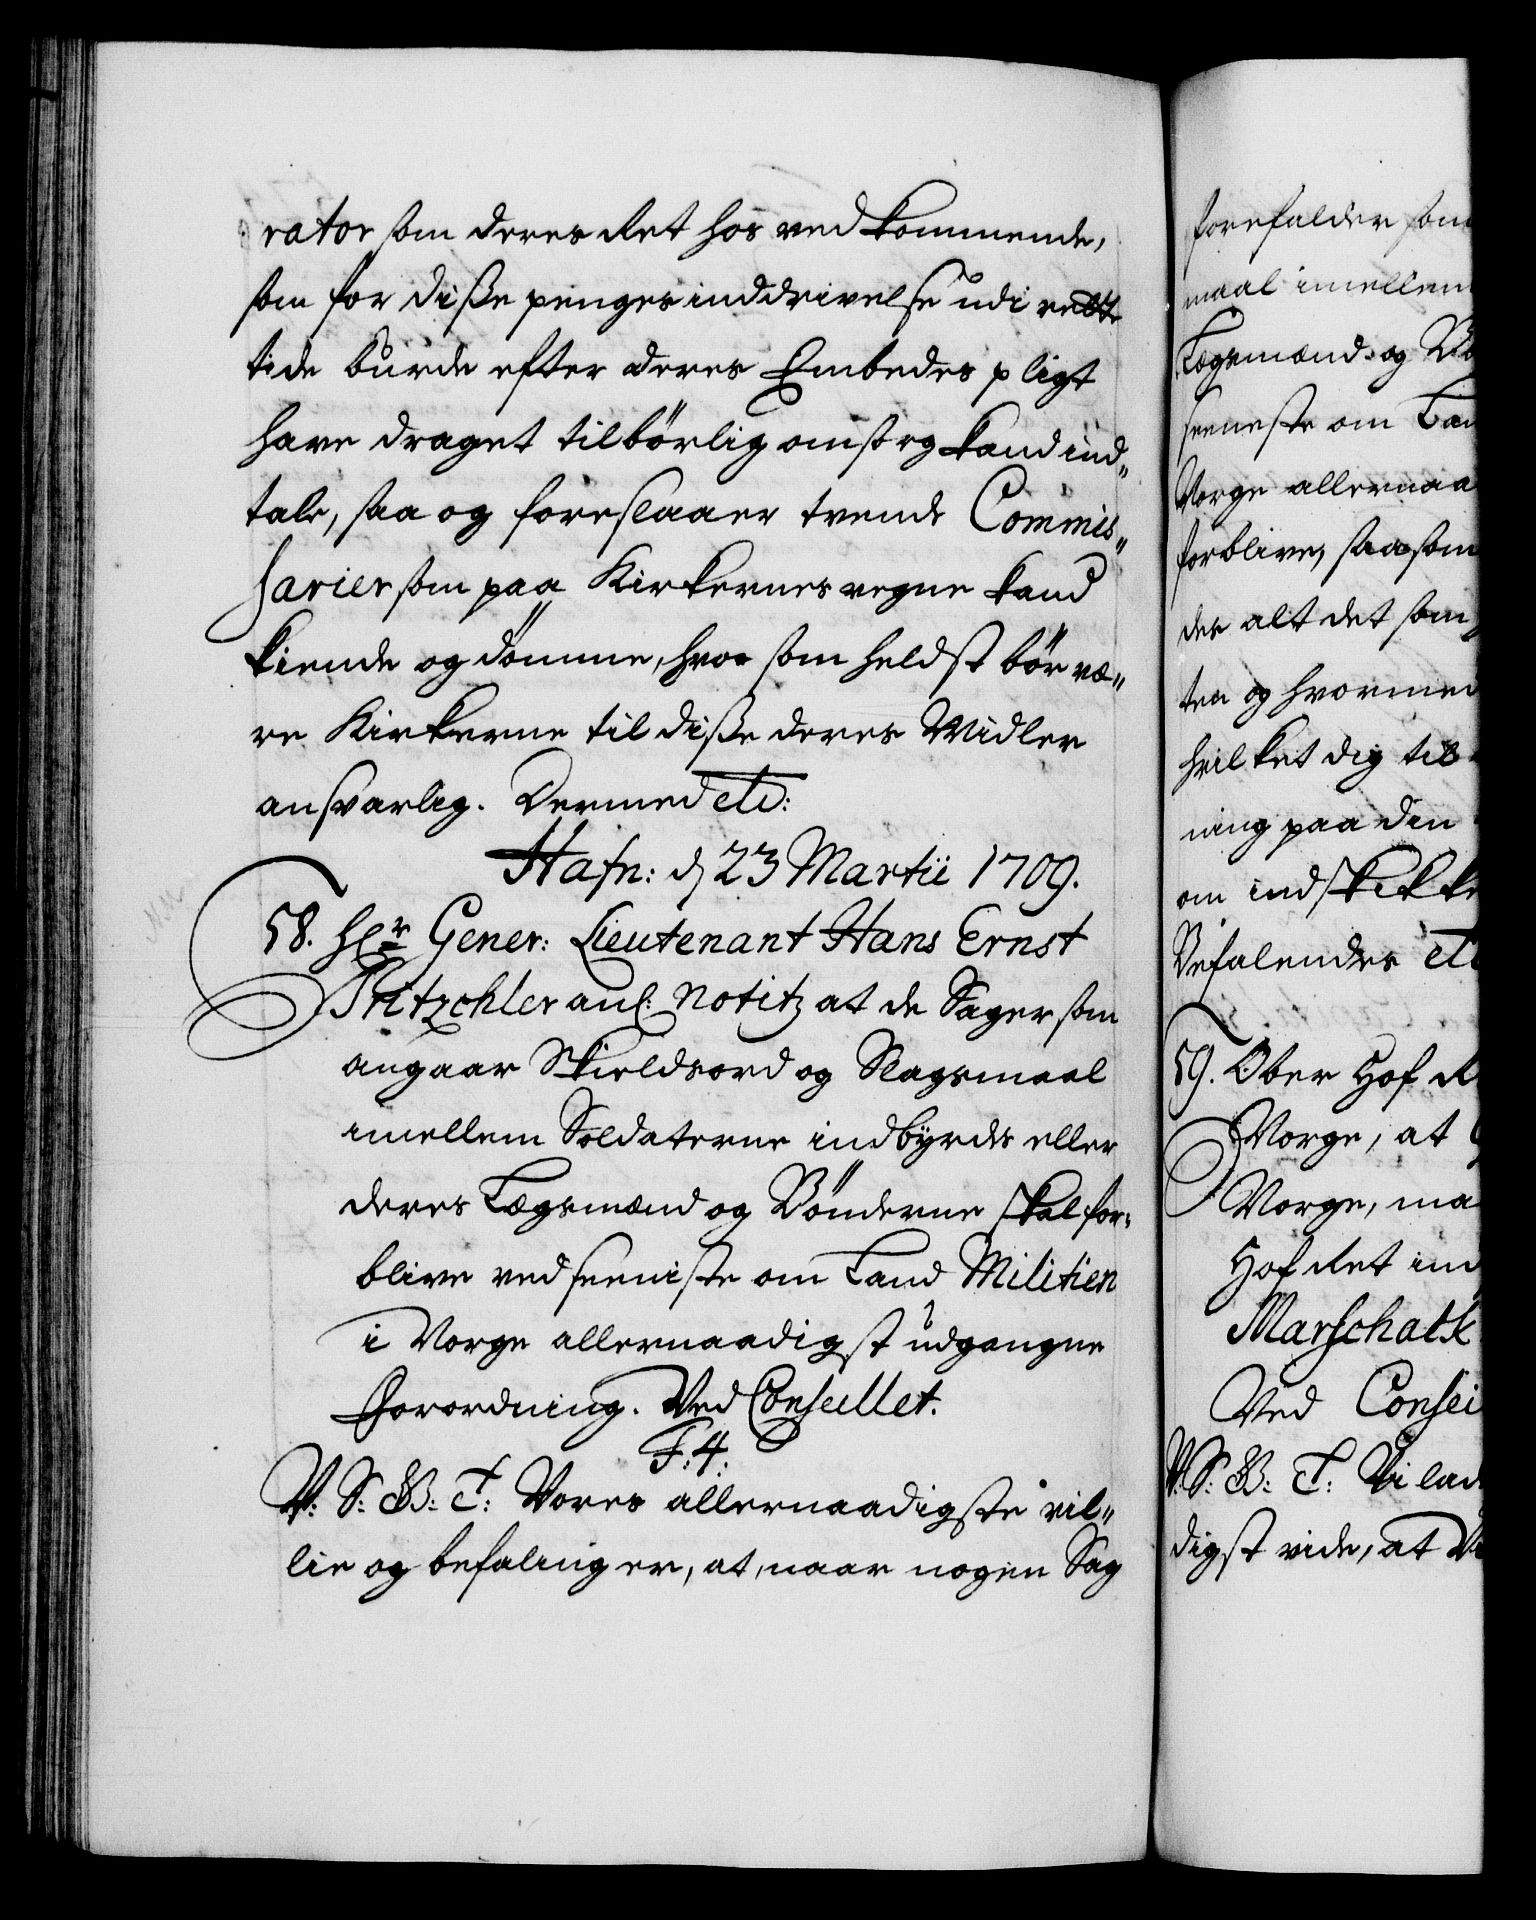 rator som deres Ret hos vedkommende,
som for diße penges inddrivelse udi rette
tide burde efter deres Embedes pligt
have draget tilbörlig omsorg kand ind„
tale, saa og foreslaaer trende Commis„
sarier som paa Kirkernes vegne kand
kiende og dömme, hvor som heldst bör væ„
re Kirkerne til diße deres Midler
ansvarlig. Dermed etc:
Hafn: d 23 Martii 1709.
58. Hr Gener: Lieutenant Hans Ernst
Tritzchler anl: Notitz at de Sager som
angaar Skieldsord og Slagsmaal
imellem Soldaterne indbyrdes eller
deres Lægsmænd og Bönderne skal for„
blive ved seeniste om Land Militien
i Norge allernaadigst udgangne
Forordning. Ved Conseillet.
F: 4:
V: S: G: T: Vores allernaadigste vil„
lie og befaling er, at, naar nogen Sag
forefalder som
maal imellem
Lægsmænd og Bö
seeneste om Lan
Norge allernaa
forblive, saasom
der alt det som
ten og hvormed
hvilket dig til
ning paa din
om indskikke
Befalendes etc
59. Ober Hof R
Norge, at
Norge, ma
Hof Ret ind
Marschalk
Ved Consei
V: S: G: T: Vi lad
digst vide, at Vi